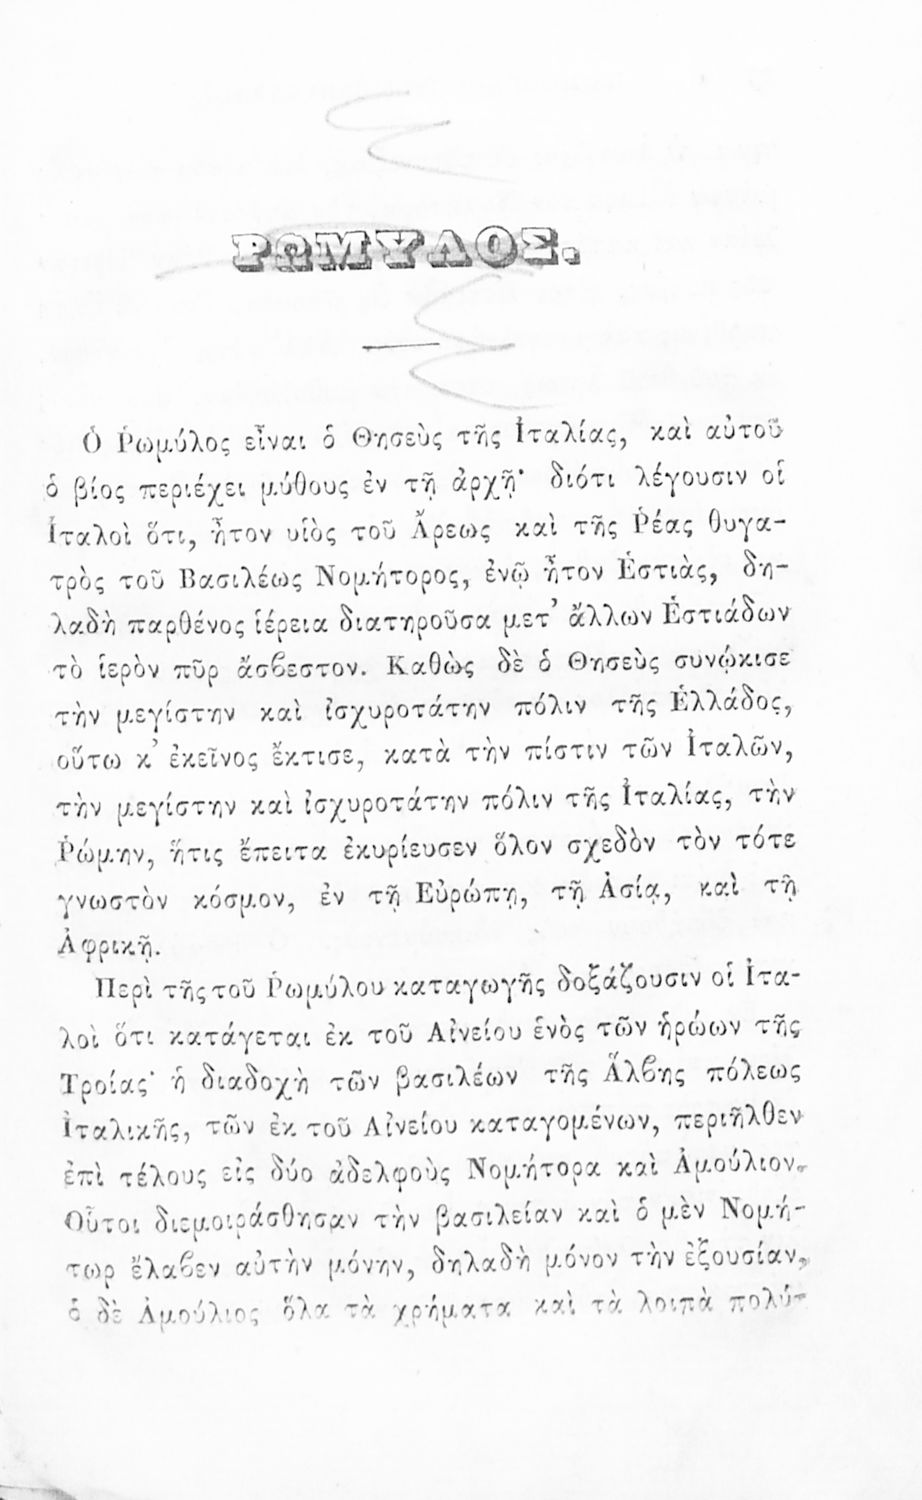 ΡΩΜΥΛΟΣ.
Ὁ Ῥωμύλος εἶναι ὁ Θησεὺς τῆς Ἰταλίας, καὶ αὐτοῦ
ὁ βίος περιέχει μύθους ἐν τῇ ἀρχῇ· διότι λέγουσιν οἱ
Ἰταλοὶ ὅτι, ἦτον υἱὸς τοῦ Ἄρεως καὶ τῆς Ῥέας θυγα-
τρὸς τοῦ Βασιλέως Νομήτορος, ἐνῷ ἦτον Ἑστιὰς, δη-
λαδὴ παρθένος ἱέρεια διατηροῦσα μετ' ἄλλων Ἑστιάδων
τὸ ἱερὸν πῦρ ἄσϐεστον. Καθὼς δὲ ὁ Θησεὺς συνῴκισε
τὴν μεγίστην καὶ ἰσχυροτάτην πόλιν τῆς Ἑλλάδος,
οὕτω κ' ἐκεῖνος ἔκτισε, κατὰ τὴν πίστιν τῶν Ἰταλῶν,
τὴν μεγίστην καὶ ἰσχυροτάτην πόλιν τῆς Ἰταλίας, τὴν
Ῥώμην, ἥτις ἔπειτα ἐκυρίευσεν ὅλον σχεδὸν τὸν τότε
γνωστὸν κόσμον, ἐν τῇ Εὐρώπῃ, τῇ Ἀσίᾳ, καὶ τῇ
Ἀφρικῇ.
Περὶ τῆς τοῦ Ῥωμύλου καταγωγῆς δοξάζουσιν οἱ Ἰτα-
λοὶ ὅτι κατάγεται ἐκ τοῦ Αἰνείου ἑνὸς τῶν ἡρώων τῆς
Τροίας· ἡ διαδοχὴ τῶν βασιλέων τῆς Ἄλϐης πόλεως
Ἰταλικῆς, τῶν ἐκ τοῦ Αἰνείου καταγομένων, περιῆλθεν
ἐπὶ τέλους εἰς δύο ἀδελφοὺς Νομήτορα καὶ Ἀμούλιον.
Οὗτοι διεμοιράσθησαν τὴν βασιλείαν καὶ ὁ μὲν Νομή-
τωρ ἔλαϐεν αὐτὴν μόνην, δηλαδὴ μόνον τὴν ἐξουσίαν,
ὁ δὲ Ἀμούλιος ὅλα τὰ χρήματα καὶ τὰ λοιπὰ πολύ-